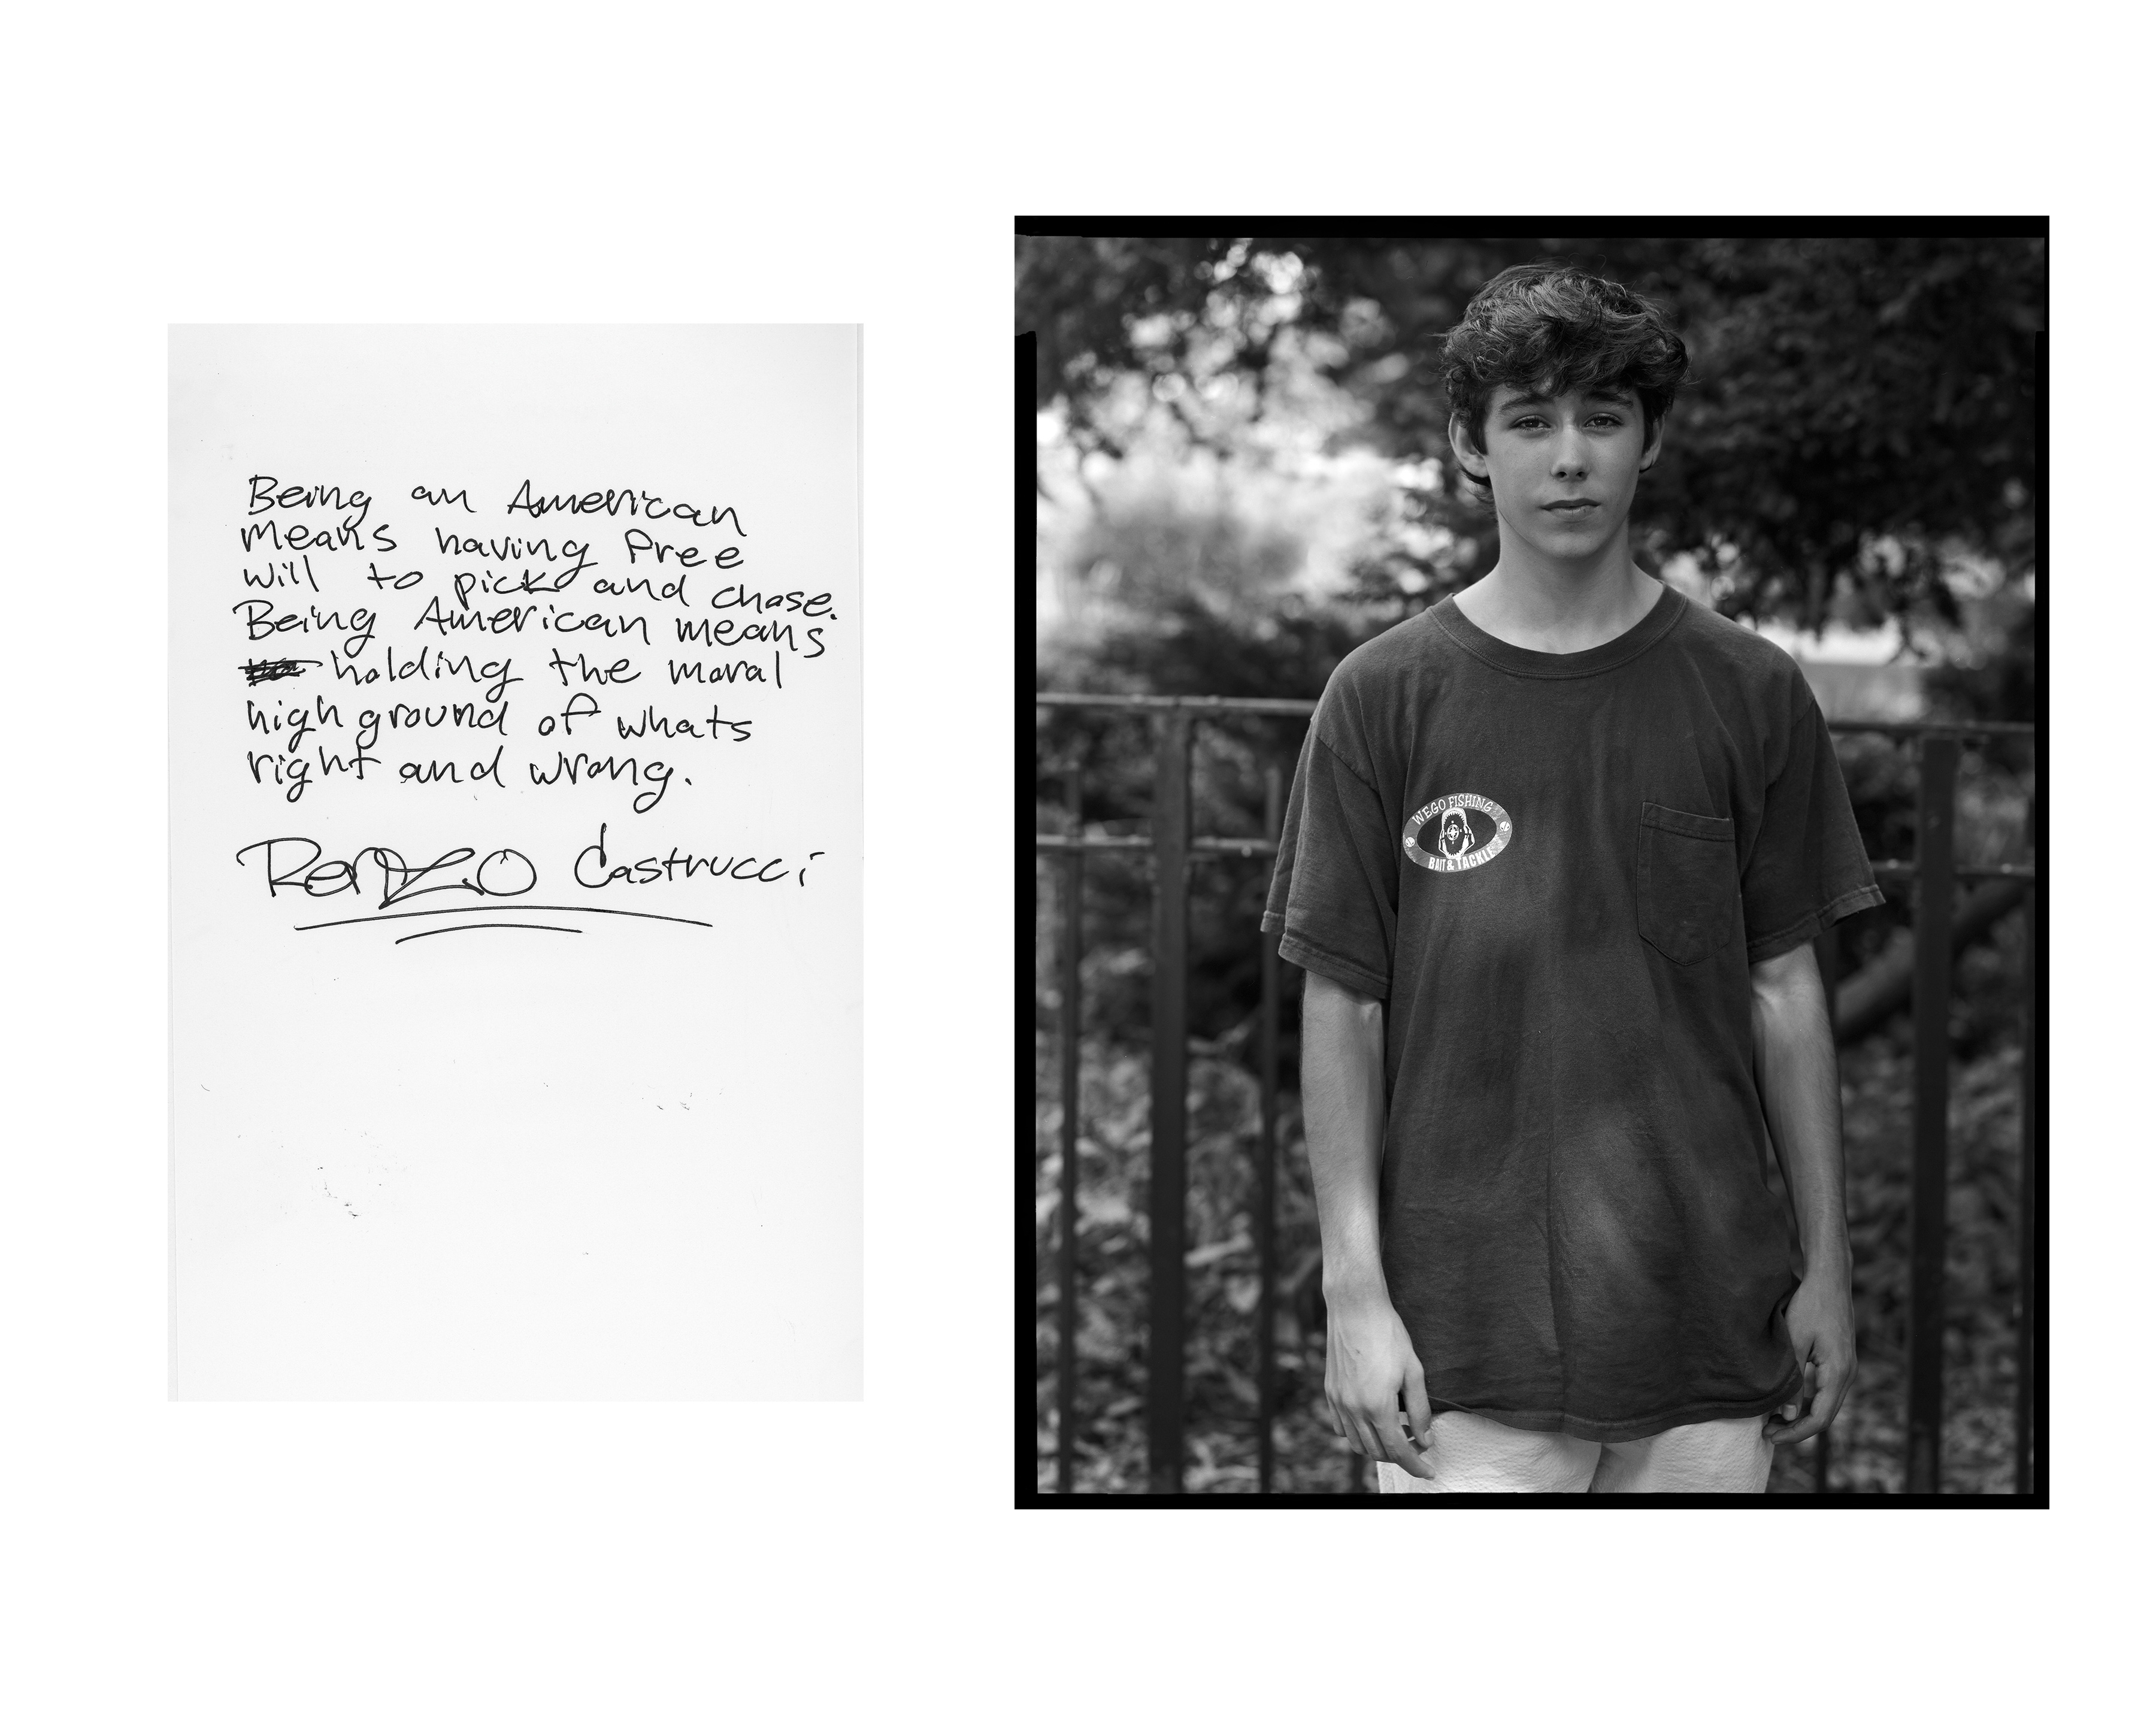 Being an American
means having free
will to pick and chose.
Being American means
holding the moral
high ground of whats
right and wrong.
Renzo Castrucci
WEGO FISHING
BAIT & TACKLE